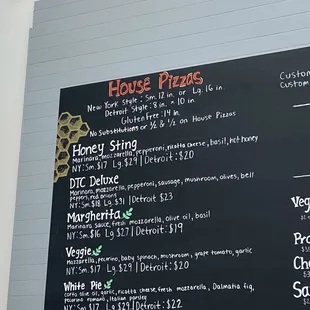 House Pizzas
New York Style : Sm. 12 in. or Lg. 16 in.
Detroit Style : 8 in. x 10 in.
Gluten free : 14 in.
No Substitutions or ½ & ½ on House Pizzas
Honey Sting
Marinara, mozzarella, pepperoni, ricotta cheese, basil, hot honey
NY: Sm. $17 Lg. $29 | Detroit: $20
DTC Deluxe
Marinara, mozzarella, pepperoni, sausage, mushroom, olives, bell
peppers, red onions
NY: Sm. $18 Lg. $31 | Detroit $23
Margherita
Marinara sauce, fresh mozzarella, olive oil, basil
NY: Sm. $16 Lg. $27 | Detroit: $19
Veggie
Mozzarella, pecorino, baby spinach, mushroom, grape tomato, garlic
NY: Sm. $17 Lg. $29 | Detroit: $20
White Pie
olive oil, garlic, ricotta cheese, fresh mozzarella, Dalmatia fig,
pecorino romano, Italian parsley
NY: Sm. $17 Lg. $29 | Detroit: $22
Custom
Custom